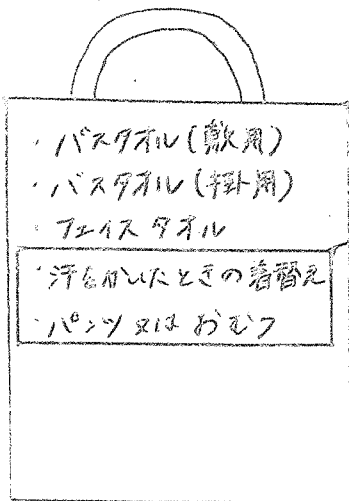 ・バスタオル(敷用)
・バスタオル(掛用)
・フェイスタオル
・汗をかいたときの着替え
・パンツ又はおむつ